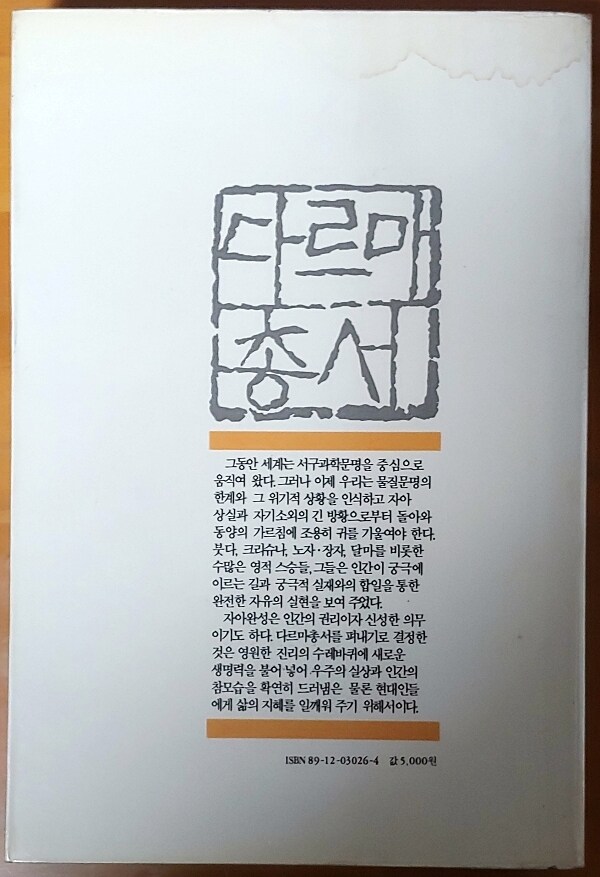 다르마
총서
그동안 세계는 서구과학문명을 중심으로
움직여 왔다. 그러나 이제 우리는 물질문명의
한계와 그 위기적 상황을 인식하고 자아
상실과 자기소외의 긴 방황으로부터 돌아와
동양의 가르침에 조용히 귀를 기울여야 한다.
붓다, 크리슈나, 노자·장자, 달마를 비롯한
수많은 영적 스승들, 그들은 인간이 궁극에
이르는 길과 궁극적 실재와의 합일을 통한
완전한 자유의 실현을 보여 주었다.
자아완성은 인간의 권리이자 신성한 의무
이기도 하다. 다르마총서를 펴내기로 결정한
것은 영원한 진리의 수레바퀴에 새로운
생명력을 불어 넣어 우주의 실상과 인간의
참모습을 확연히 드러냄은 물론 현대인들
에게 삶의 지혜를 일깨워 주기 위해서이다.
ISBN 89-12-03026-4 값 5,000원